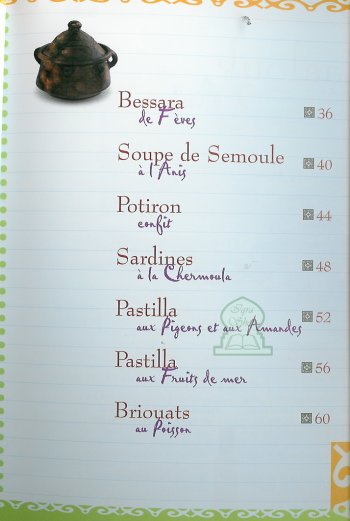 Bessara
de Fèves
36
Soupe de Semoule
à l'Anis
40
Potiron
confit
44
Sardines
à la Chermoula
48
Pastilla
aux Pigeons et aux Amandes
52
Pastilla
aux Fruits de mer
56
Briouats
au Poisson
60